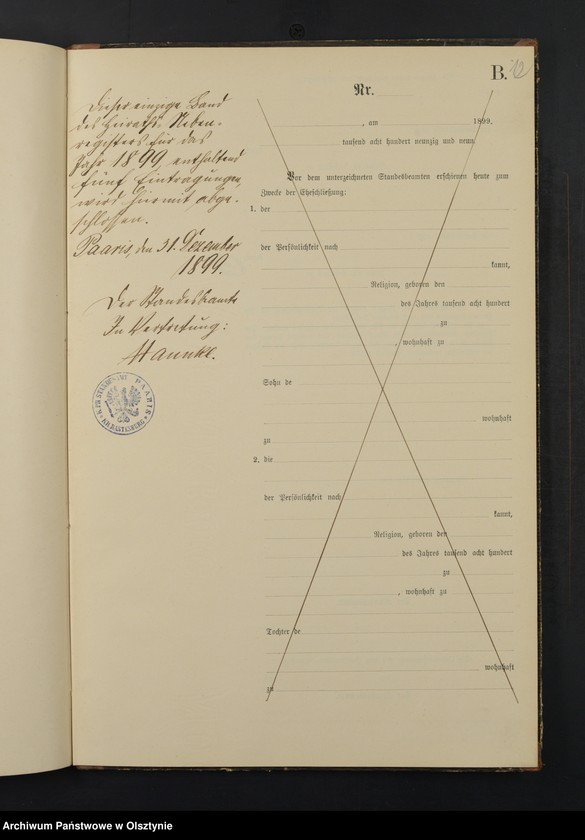 B. 12
Nr.
, am 1899,
tausend acht hundert neunzig und neun
Vor dem unterzeichneten Standesbeamten erschienen heute zum
Zwecke der Eheschließung:
1. der
der Persönlichkeit nach
kannt,
Religion, geboren den
des Jahres tausend acht hundert
zu
, wohnhaft zu
Sohn de
wohnhaft
zu
2. die
der Persönlichkeit nach
kannt,
Religion, geboren den
des Jahres tausend acht hundert
zu
, wohnhaft zu
Tochter de
wohnhaft
zu
Dieser einzige Band
des Heiraths-Neben-
registers für das
Jahr 1899 enthaltend
fünf Eintragungen,
wird hiermit abge-
schlossen.
Paaris, den 31. Dezember
1899.
Der Standesbeamte
In Vertretung:
K. PR. STANDESAMT PAARIS
KR. RASTENBURG
Archiwum Państwowe w Olsztynie